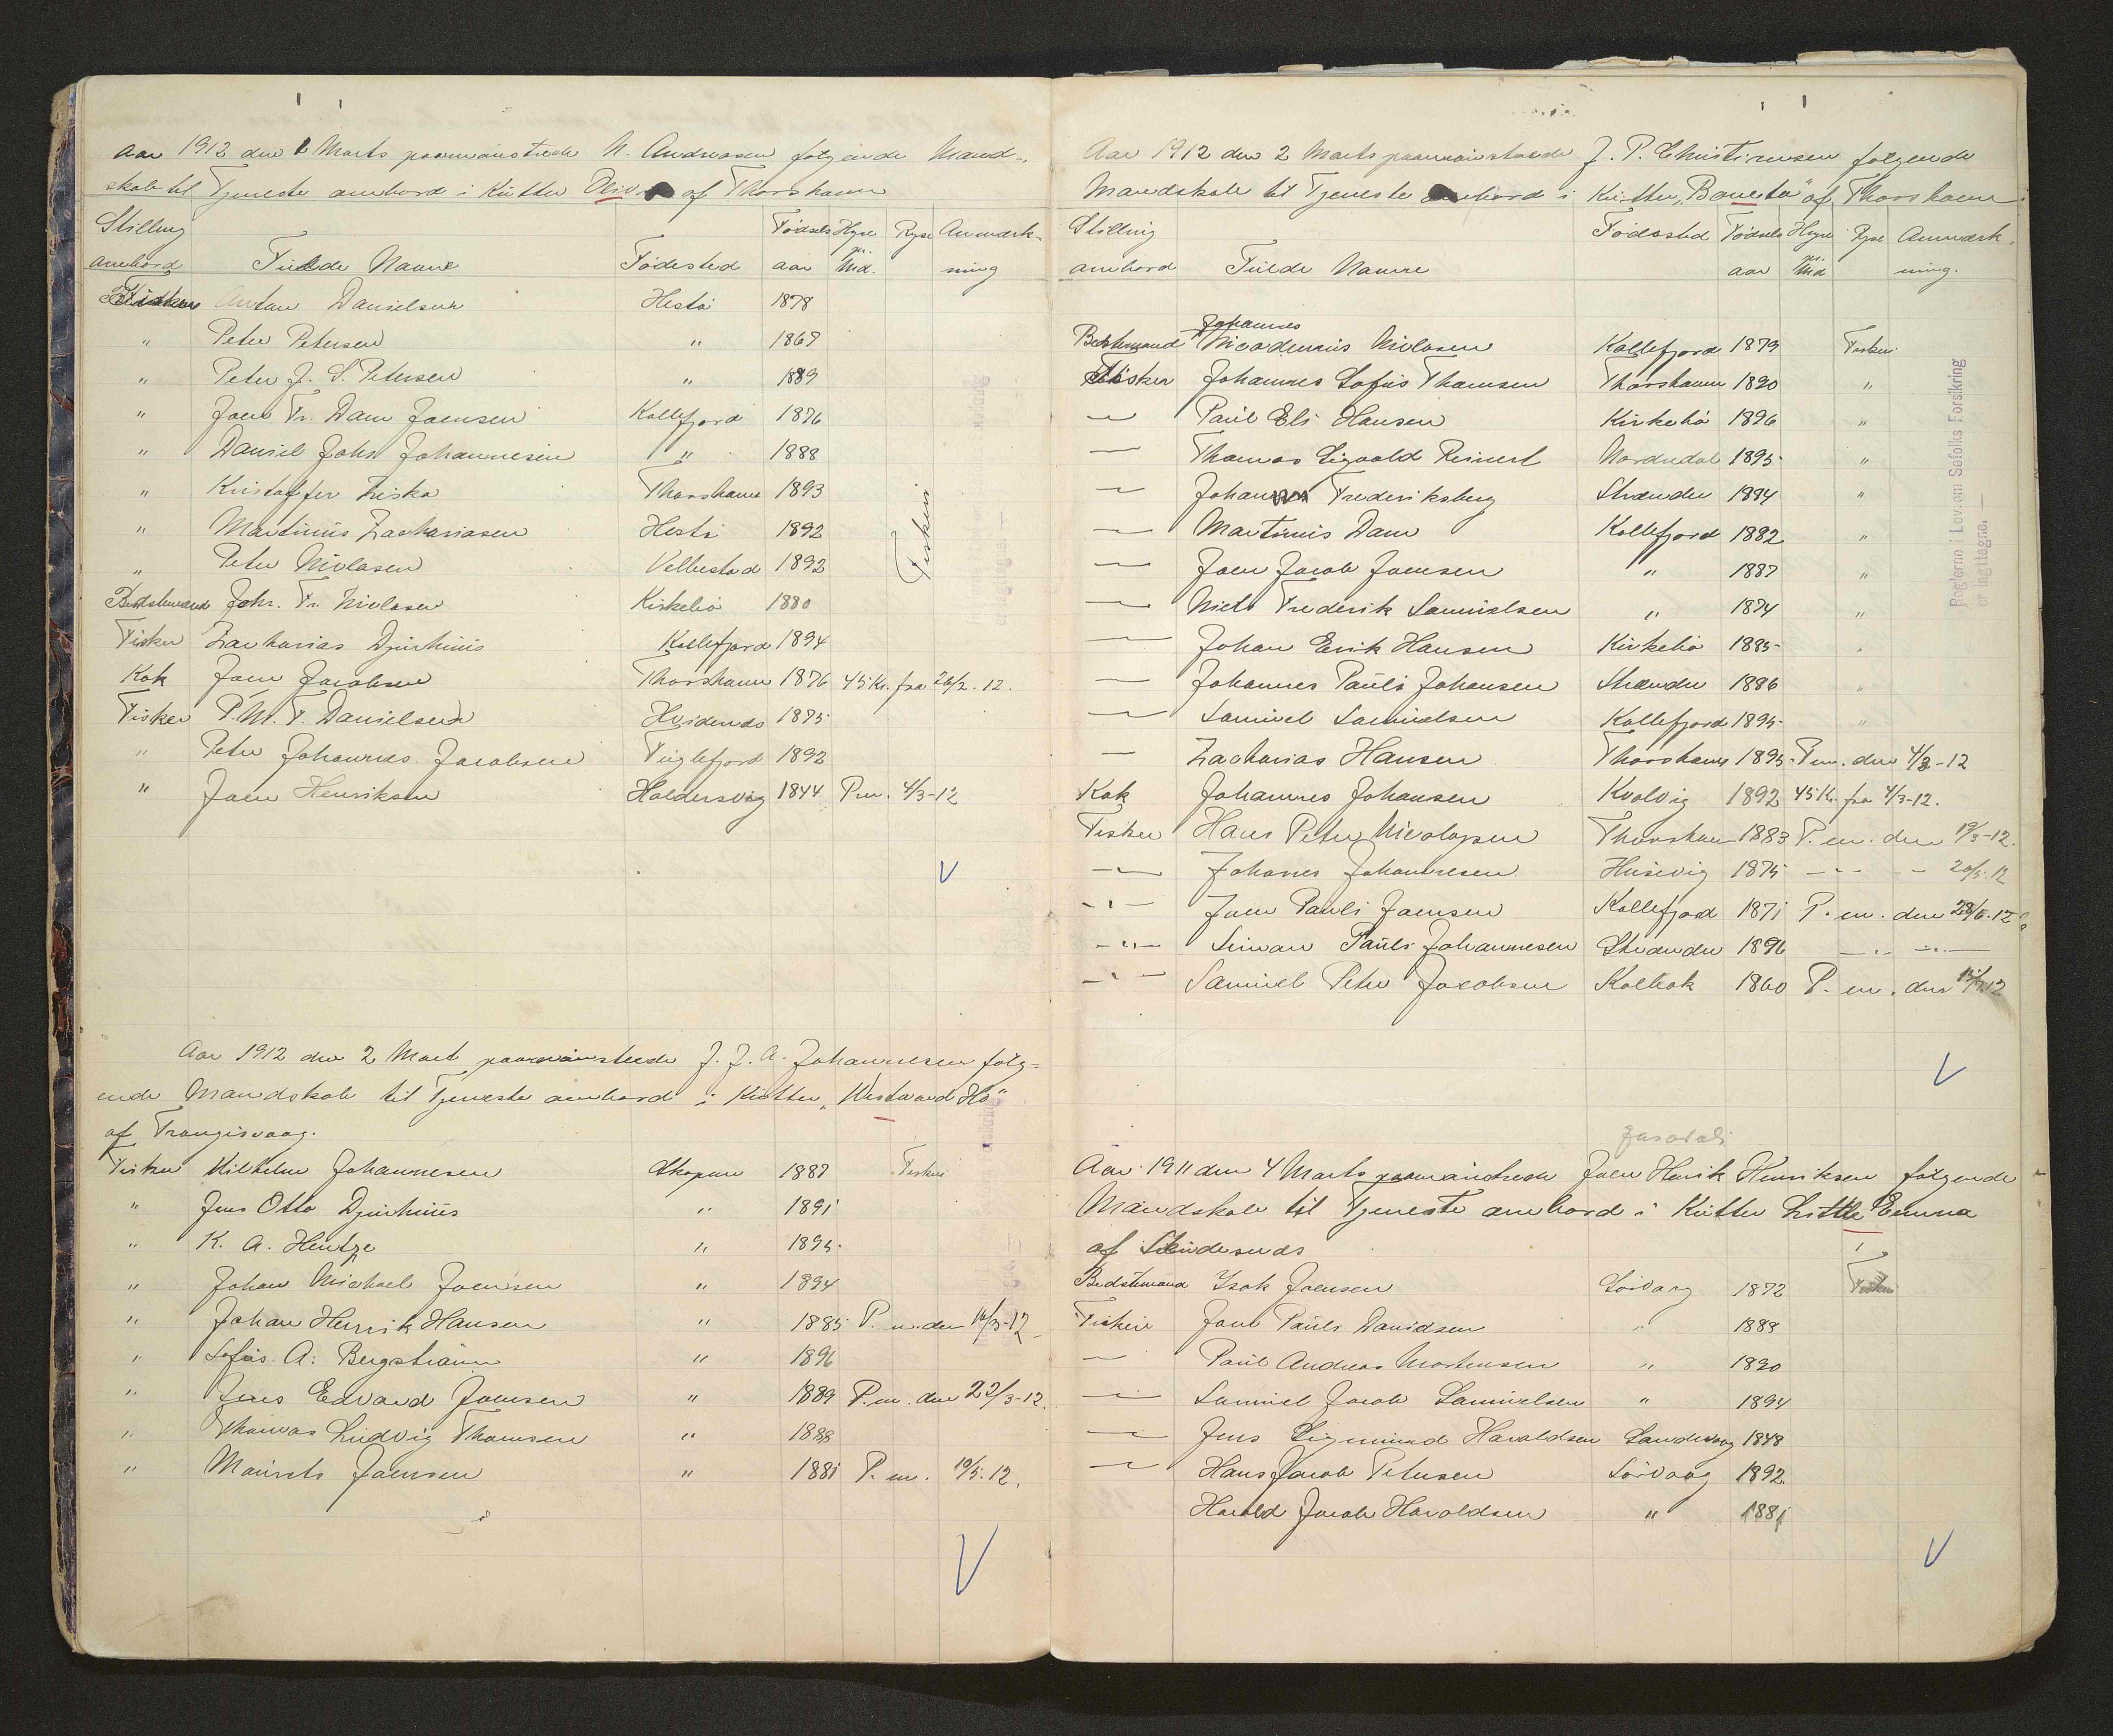 Aar 1912 den 1 Marts paamønstrede N. Andreasen følgende Mand-
skab til Tjeneste ombord i Kutter Oliv af Thorshavn
Stilling ombord Fulde Navne Fødested Fødsels aar Hyre pr. Md. Rejse Anmærkning
Fisker Anton Danielsen Hestø 1878
" Peter Petersen " 1869
" Peter J. S. Petersen " 1889
" Joen Fr. Dam Joensen Kollefjord 1876
" Daniel Johs Johannesen " 1888
" Kristoffer Friska Thorshavn 1893
" Martinus Zachariasen Hestø 1892
" Peter Niclasen Velbestad 1892
Bedstemand Johs. Fr. Niclasen Kirkebø 1880
Fisker Zacharias Djurhuus Kollefjord 1894
Kok Joen Jacobsen Thorshavn 1876 45 Kr. fra 26/2. 12.
Fisker P. M. F. Danielsen Hvidenæs 1875
" Peter Johannes Jacobsen Fuglefjord 1892
" Joen Henriksen Haldersvig 1844 P.m. 4/3-12
Fiskeri
Aar 1912 den 2 Mart paamønstrede J. J. A. Johannesen følg-
ende Mandskab til Tjeneste ombord i Kutter "Westward Ho"
af Trangisvaag.
Fisker Vilhelm Johannesen Skopun 1887 Fiskeri
" Jens Otto Djurhuus " 1891
" K. A. Hentze " 1895
" Johan Michael Joensen " 1894
" Johan Henrik Hansen " 1885 P.m. den 16/3-12
" Sofus A. Bergstrøm " 1896
" Jens Edvard Joensen " 1889 P.m. den 22/3-12.
" Thomas Ludvig Thomsen " 1888
" Maurits Joensen " 1881 P.m. 10/5.12.
Aar 1912 den 2 Marts paamønstrede J. P. Christiansen følgende
Mandskab til Tjeneste ombord i Kutter "Bonesta" af Thorshavn
Stilling ombord Fulde Navne Fødested Fødsels aar Hyre pr. Md Rejse Anmærkning.
Johannes
Bedstemand Nicodemus Niclasen Kollefjord 1879 Fiskeri
Fisker Johannes Sofus Thomsen Thorshavn 1890 "
— Paul Eli Hansen Kirkebø 1896 "
— Thomas Sigvald Reinert Nordredal 1895 "
— Johan Frederiksberg Strænder 1894 "
— Martinus Dam Kollefjord 1882 "
— Joen Jacob Joensen " 1887 "
— Niels Frederik Samuelsen " 1874 "
— Johan Erik Hansen Kirkebø 1885 "
— Johannes Pauli Johansen Strænder 1886 "
— Samuel Samuelsen Kollefjord 1895 "
— Zacharias Hansen Thorshavn 1895 P.m. den 4/3-12
Kok Johannes Johansen Kvalvig 1892 45 Kr. fra 4/3-12.
Fisker Hans Peter Nicolajsen Thorshavn 1883 P.m. den 19/3-12.
— Johannes Johannesen Husevig 1875 — " — 20/5.12
— " — Joen Pauli Joensen Kollefjord 1871 P.m. den 28/6.12
— " — Simon Pauli Johannesen Strænder 1896 — " —
— " — Samuel Peter Jacobsen Kolbak 1860 P.m. den 12
Reglerne i Lov. om Søfolks Forsikring
er iagttagne. —
Aar 1911 den 4 Marts paamønstrede Joen Henrik Henriksen følgende
Mandskab til Tjeneste ombord i Kutter Little Emma
af
Bedstemand Isak Joensen Sørvaag 1872 Fiskeri
Fisker Joen Pauli Davidsen " 1888
— Paul Andreas Mortensen " 1890
— Samuel Jacob Samuelsen " 1894
— Jens Sigmund Haraldsen Sandevaag 1848
— Hans Jacob Petersen Sørvaag 1892.
Harald Jacob Haraldsen " 1881